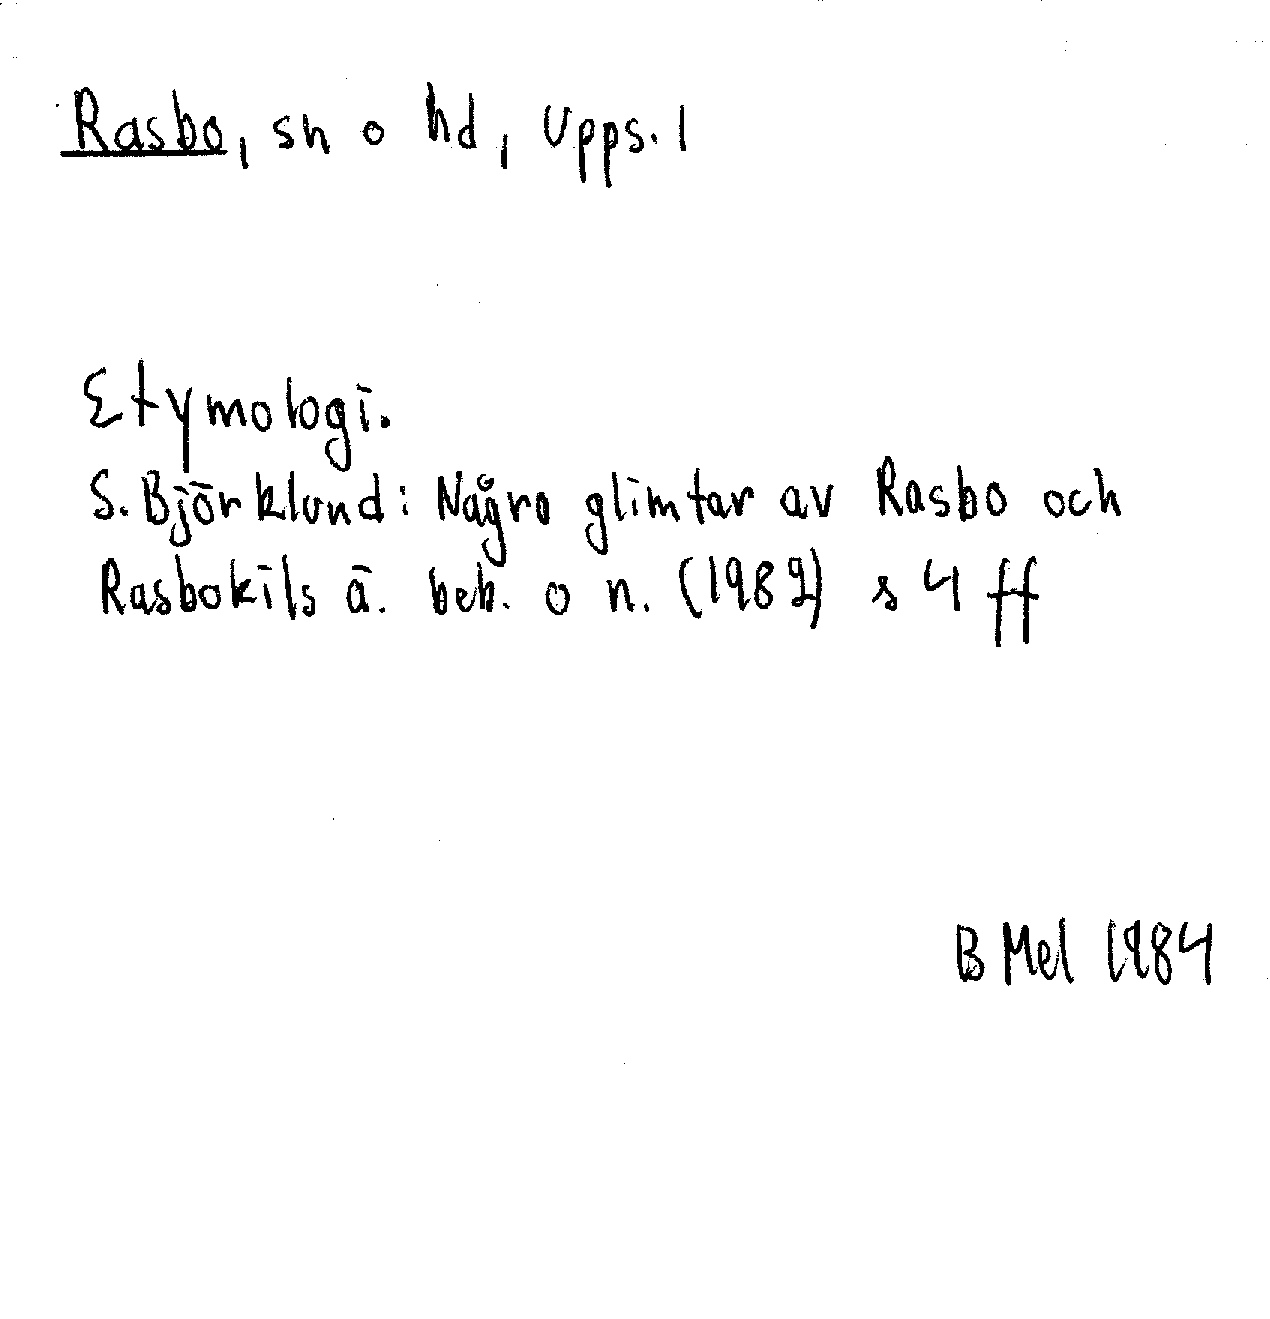 Rasbo, sn o hd, Upps. l
Etymologi.
S. Björklund: Några glimtar av Rasbo och
Rasbokils ä. beb. o n. (1982) s 4 ff
B Mel 1984